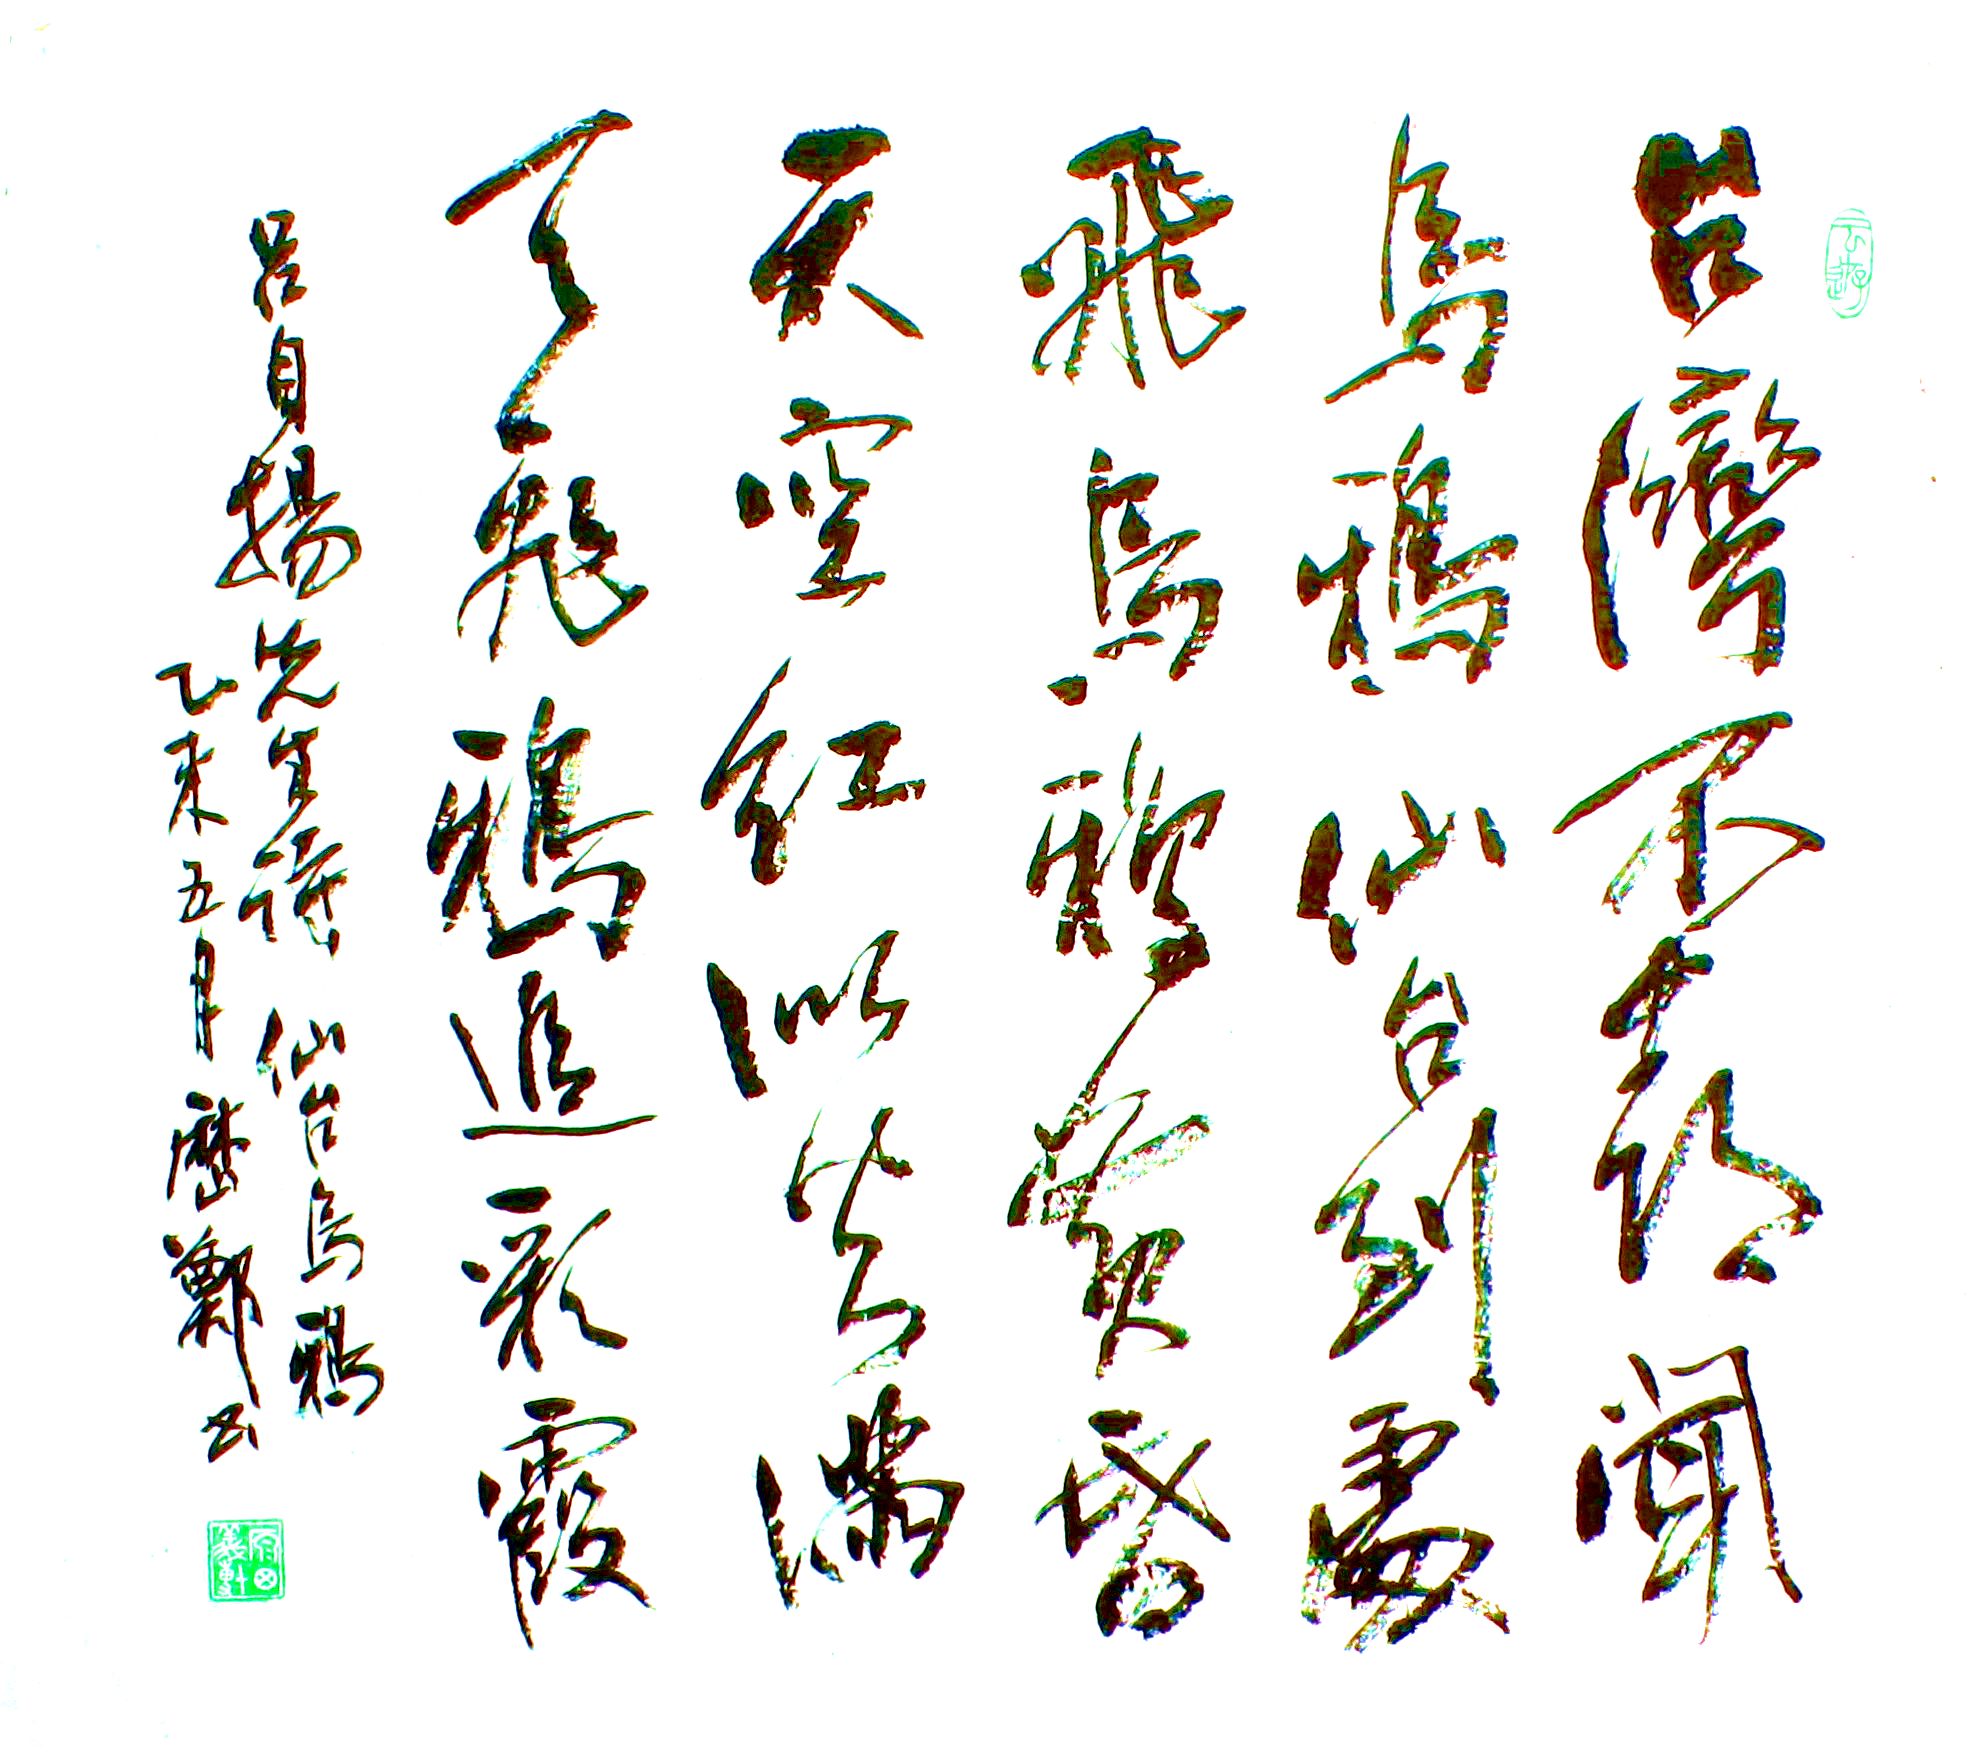 台灣不聞
烏鴉仙台到處
飛烏鴉黃昏
天空紅似火滿
天飛鴉追彩霞
呂自揚先生詩 仙台烏鴉
乙未五月 鄭书